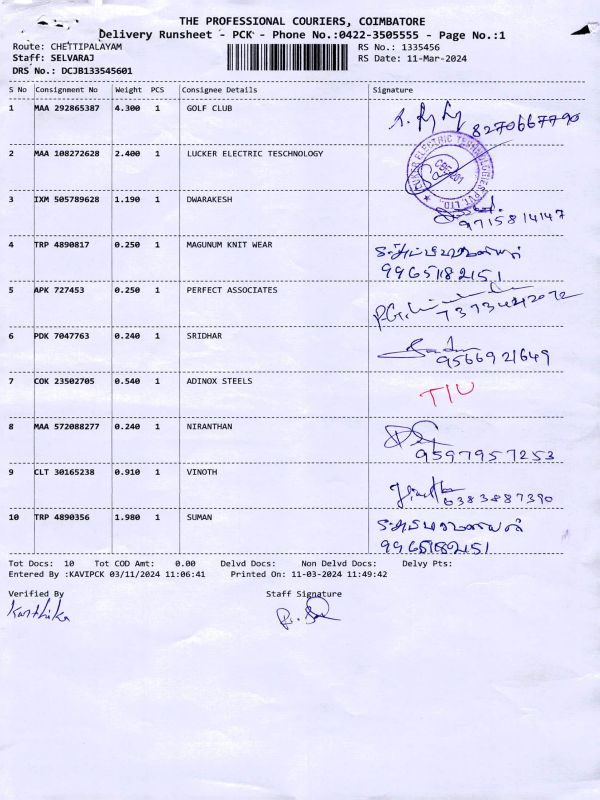 THE PROFESSIONAL COURIERS, COIMBATORE
Delivery Runsheet - PCK - Phone No.:0422-3505555 - Page No.:1
Route: CHETTIPALAYAM RS No.: 1335456
Staff: SELVARAJ RS Date: 11-Mar-2024
DRS No.: DCJB133545601
S No Consignment No Weight PCS Consignee Details Signature
1 MAA 292865387 4.300 1 GOLF CLUB 8270667790
2 MAA 108272628 2.400 1 LUCKER ELECTRIC TESCHNOLOGY
3 IXM 505789628 1.190 1 DWARAKESH 9715814147
4 TRP 4890817 0.250 1 MAGUNUM KNIT WEAR
9965182151
5 APK 727453 0.250 1 PERFECT ASSOCIATES
6 PDK 7047763 0.240 1 SRIDHAR
9566921649
7 COK 23502705 0.540 1 ADINOX STEELS
8 MAA 572088277 0.240 1 NIRANTHAN
9597957253
9 CLT 30165238 0.910 1 VINOTH 6383887390
10 TRP 4890356 1.980 1 SUMAN
9965182151
Tot Docs: 10 Tot COD Amt: 0.00 Delvd Docs: Non Delvd Docs: Delvy Pts:
Entered By :KAVIPCK 03/11/2024 11:06:41 Printed On: 11-03-2024 11:49:42
Verified By Staff Signature
Karthika